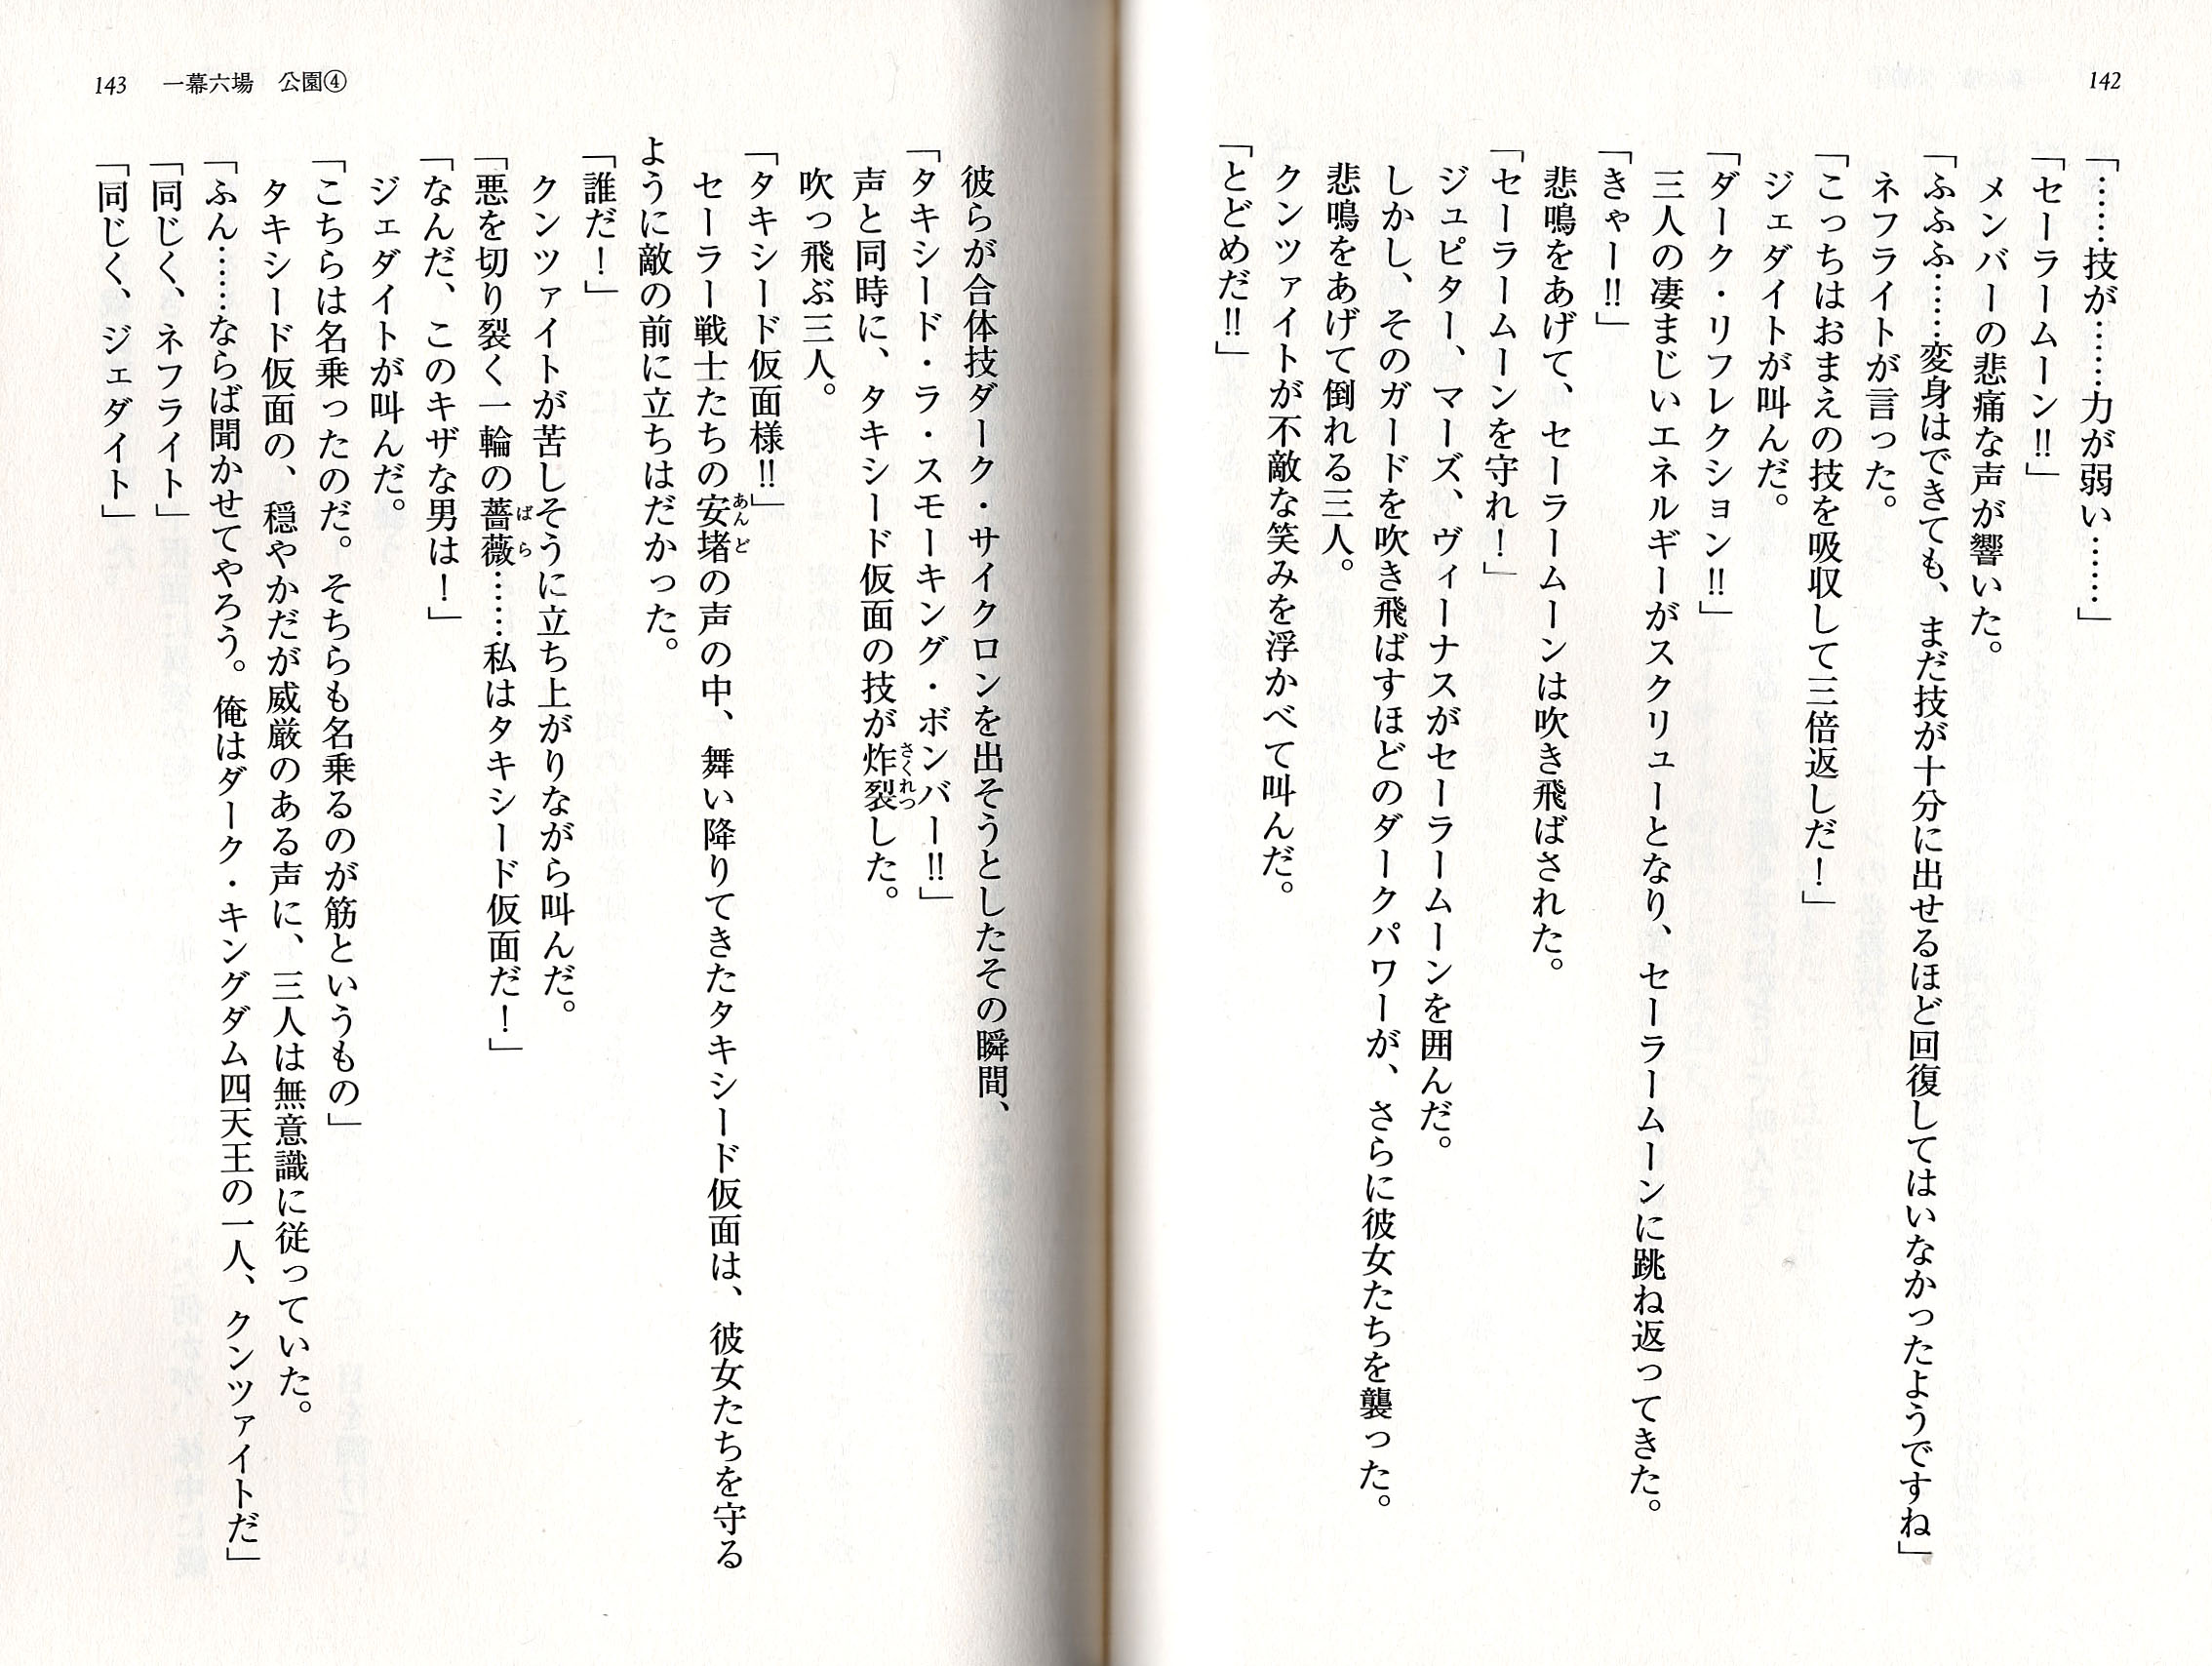 142
「……技が……力が弱い……」
「セーラームーン!!」
メンバーの悲痛な声が響いた。
「ふふふ……変身はできても、まだ技が十分に出せるほど回復してはいなかったようですね」
ネフライトが言った。
「こっちはおまえの技を吸収して三倍返しだ！」
ジェダイトが叫んだ。
「ダーク・リフレクション!!」
三人の凄まじいエネルギーがスクリューとなり、セーラームーンに跳ね返ってきた。
「きゃー!!」
悲鳴をあげて、セーラームーンは吹き飛ばされた。
「セーラームーンを守れ！」
ジュピター、マーズ、ヴィーナスがセーラームーンを囲んだ。
しかし、そのガードを吹き飛ばすほどのダークパワーが、さらに彼女たちを襲った。
悲鳴をあげて倒れる三人。
クンツァイトが不敵な笑みを浮かべて叫んだ。
「とどめだ!!」
143 一幕六場 公園④
彼らが合体技ダーク・サイクロンを出そうとしたその瞬間、
「タキシード・ラ・スモーキング・ボンバー!!」
声と同時に、タキシード仮面の技が炸裂した。
さくれつ
吹っ飛ぶ三人。
「タキシード仮面様!!」
セーラー戦士たちの安堵の声の中、舞い降りてきたタキシード仮面は、彼女たちを守る
あんど
ように敵の前に立ちはだかった。
「誰だ！」
クンツァイトが苦しそうに立ち上がりながら叫んだ。
「悪を切り裂く一輪の薔薇……私はタキシード仮面だ！」
ばら
「なんだ、このキザな男は！」
ジェダイトが叫んだ。
「こちらは名乗ったのだ。そちらも名乗るのが筋というもの」
タキシード仮面の、穏やかだが威厳のある声に、三人は無意識に従っていた。
「ふん……ならば聞かせてやろう。俺はダーク・キングダム四天王の一人、クンツァイトだ」
「同じく、ネフライト」
「同じく、ジェダイト」